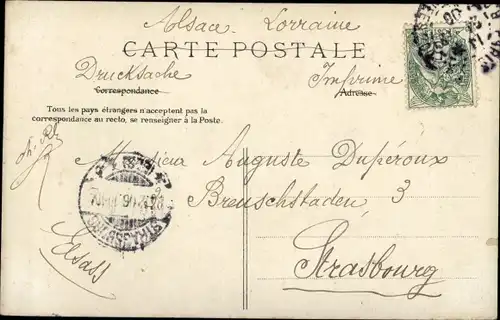 Alsace Lorraine
CARTE POSTALE
Drucksache Imprimé
Correspondance Adresse
Tous les pays étrangers n'acceptent pas la
correspondance au recto, se renseigner à la Poste.
Monsieur Auguste Dupéroux
Breuschstaden 3
Strasbourg
Elsass